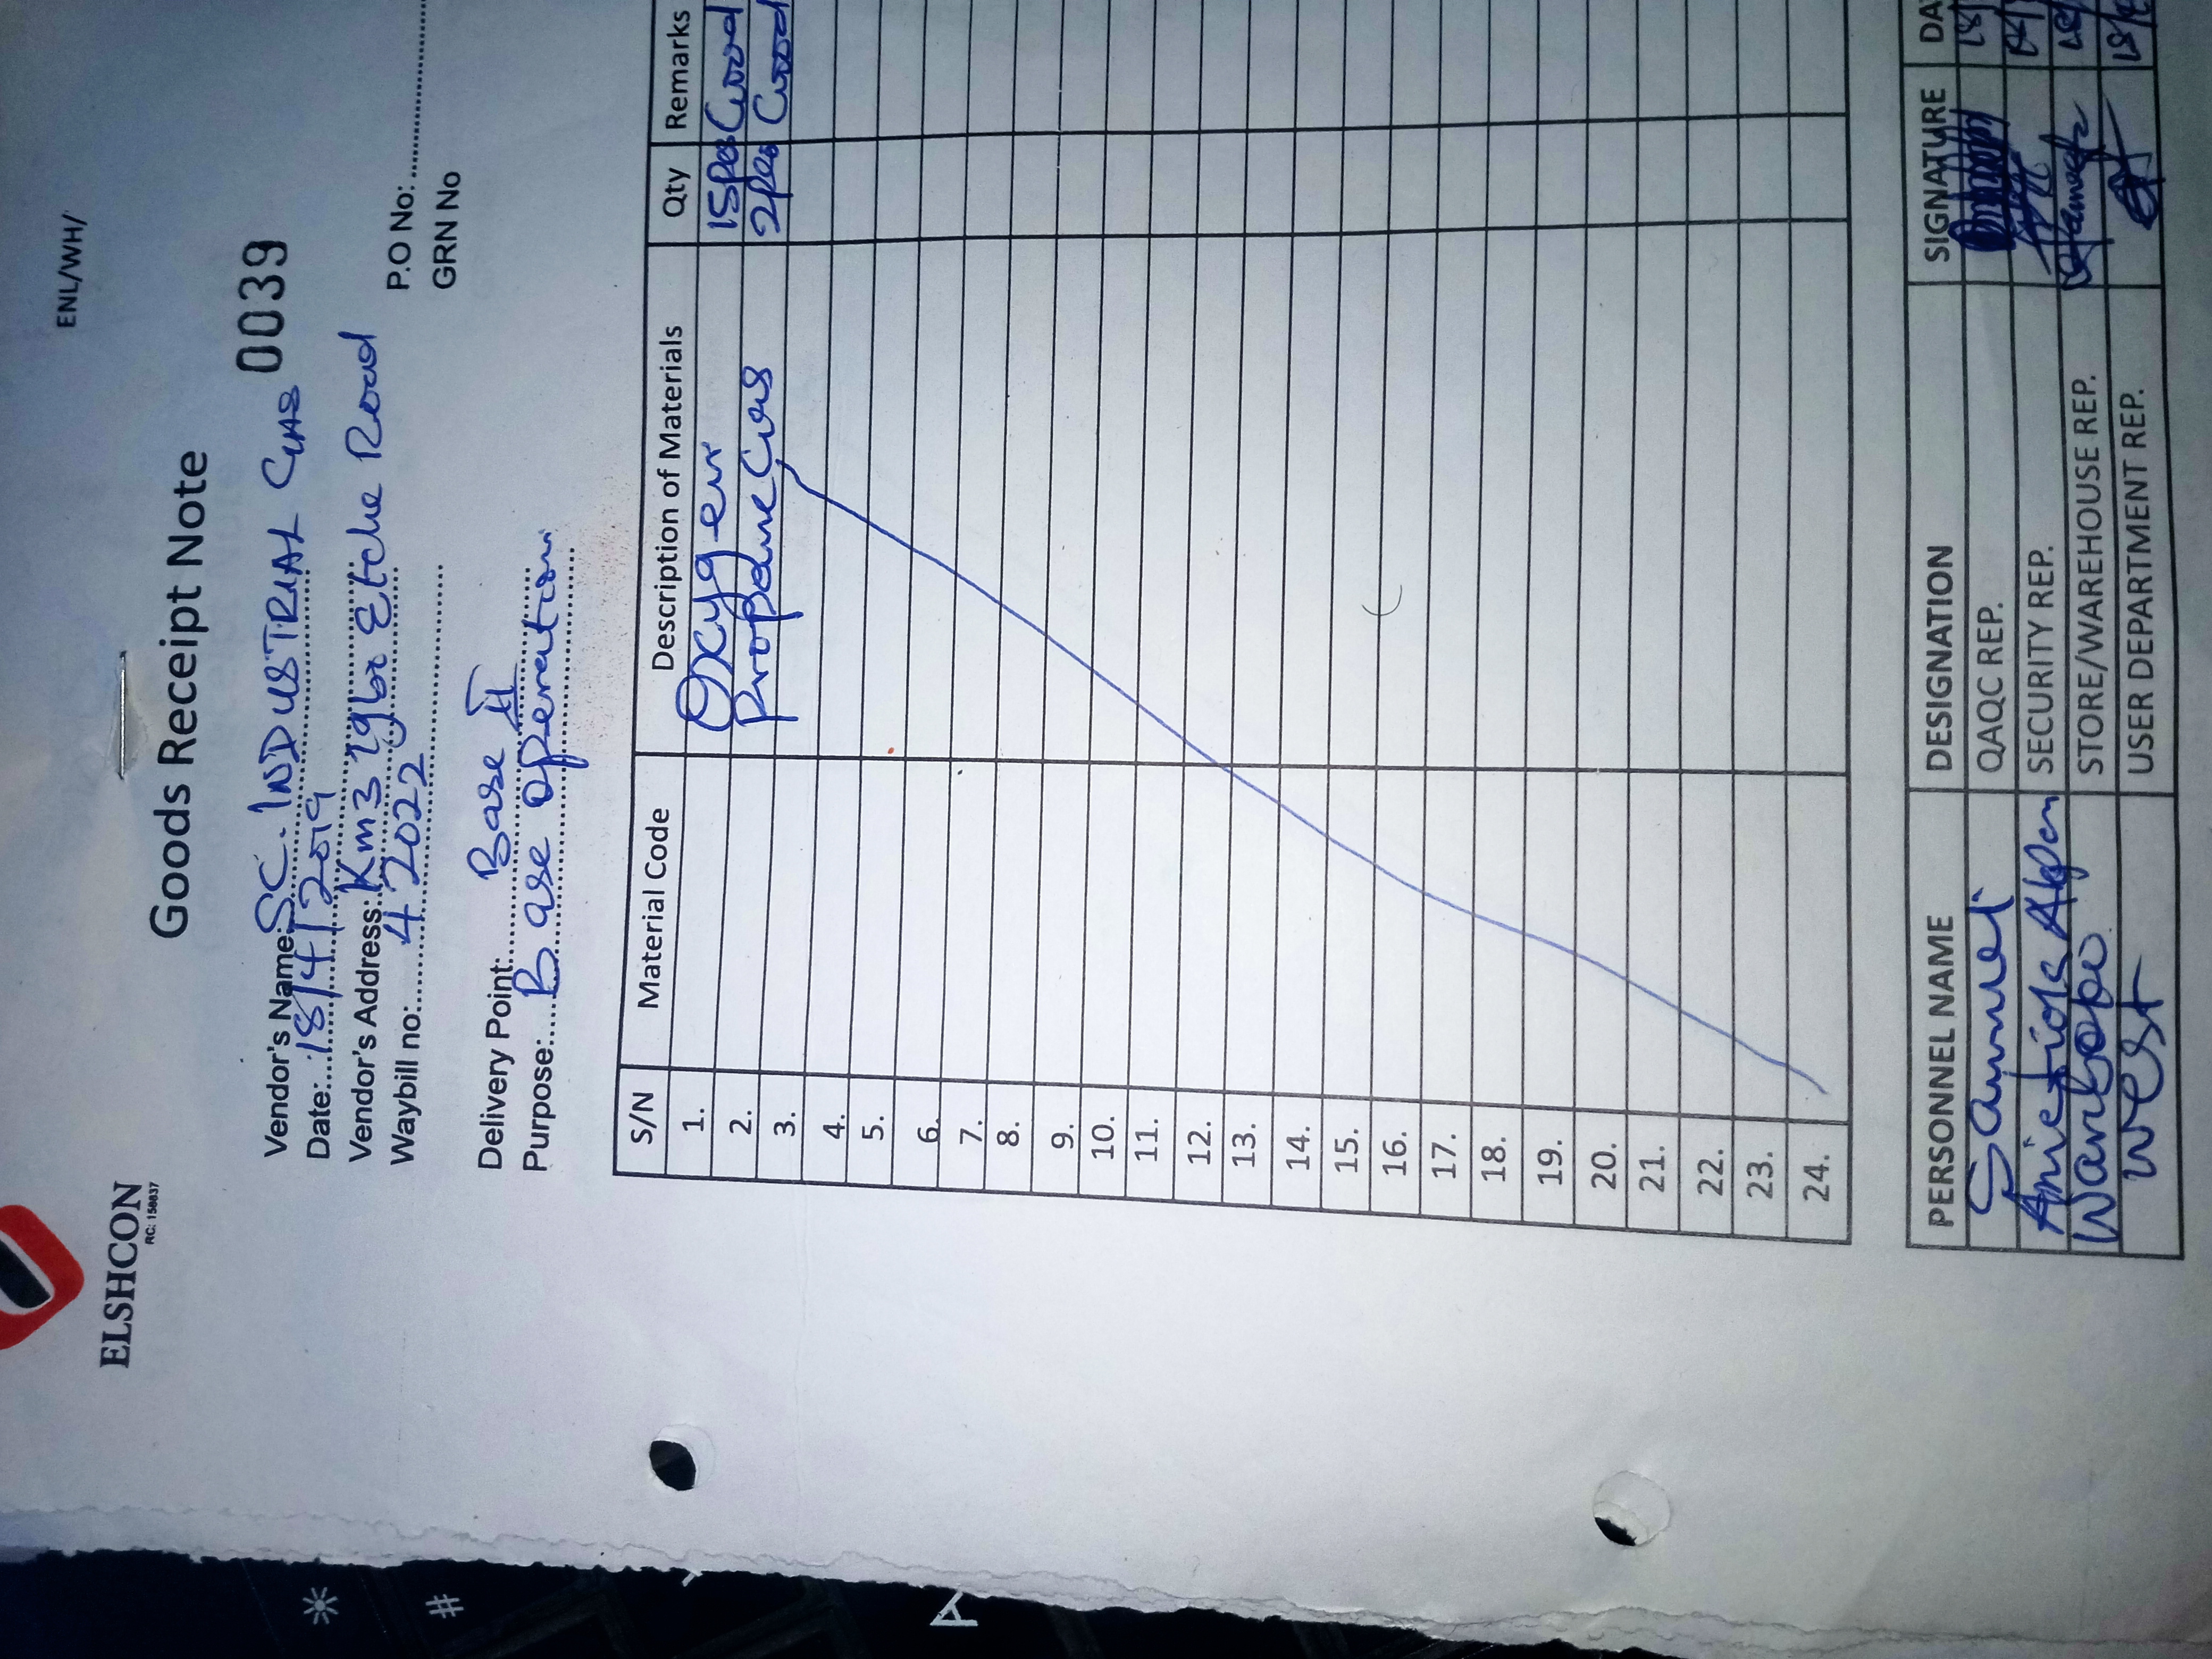 ENL/WH/
ELSHCON
RC: 158837
Goods Receipt Note
Vendor's Name: SC. INDUSTRIAL GAS 0039
Date: 18/4/2019
Vendor's Address: Km3 Igbo Etche Road
Waybill no: 42022
P.O No:
GRN No
Delivery Point: Base II
Purpose: Base operation
S/N Material Code Description of Materials Qty Remarks
1. Oxygen 15pcs Good
2. Propane Gas 2pcs Good
3.
4.
5.
6.
7.
8.
9.
10.
11.
12.
13.
14.
15.
16.
17.
18.
19.
20.
21.
22.
23.
24.
PERSONNEL NAME DESIGNATION SIGNATURE DA
Samuel QAQC REP. 18/
SECURITY REP.
Wariboko STORE/WAREHOUSE REP. 18/
West USER DEPARTMENT REP. 18/
*
#
A